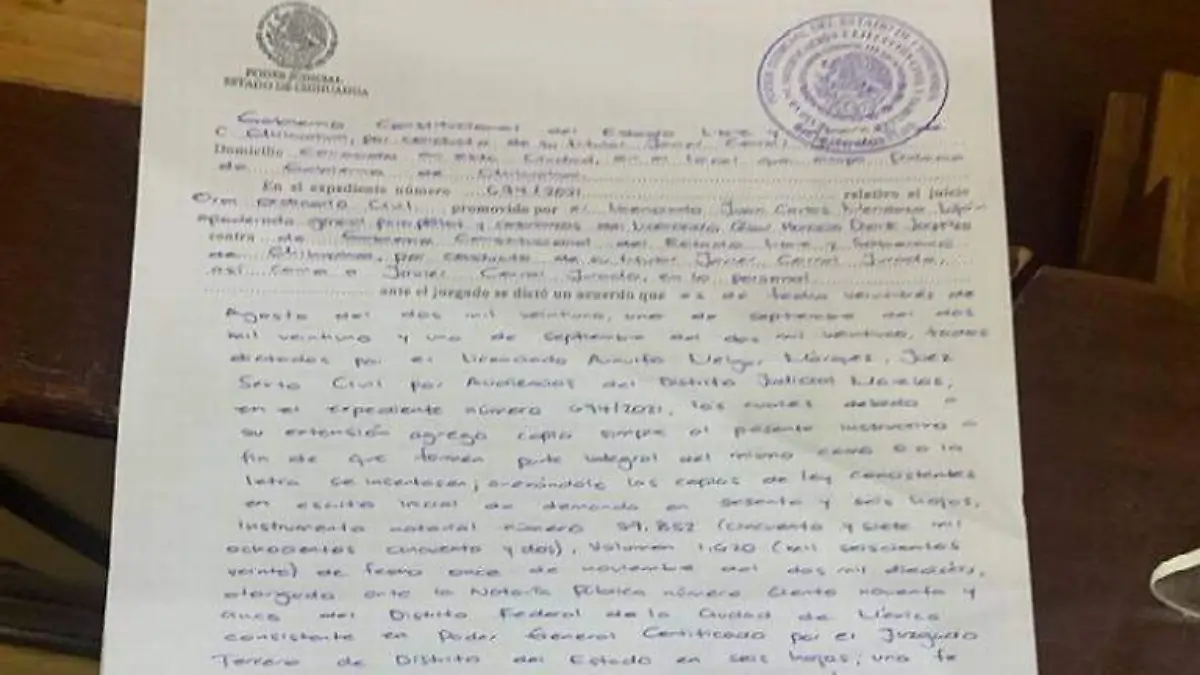 PODER JUDICIAL
ESTADO DE CHIHUAHUA
Gobierno Constitucional del Estado Libre y
C Chihuahua, por conducto de su titular Javier Corral
Domicilio Conocido en esta Ciudad, en el local que ocupa Palacio
de Gobierno de Chihuahua
En el expediente número 694/2021 relativo al juicio
Oral ordinario Civil promovido por el Licenciado Juan Carlos Mendoza
apoderado general para pleitos y cobranzas del Licenciado César Horacio Duarte Jaquez
contra de Gobierno Constitucional del Estado Libre y Soberano
de Chihuahua, por conducto de su titular Javier Corral Jurado,
así como a Javier Corral Jurado, en lo personal
ante el juzgado se dictó un acuerdo que es de fecha veintitrés de
Agosto del dos mil veintiuno, uno de septiembre del dos
mil veintiuno y uno de septiembre del dos mil veintiuno, todos
dictados por el Licenciado Márquez, Juez
Sexto Civil por Audiencias del Distrito Judicial Morelos,
en el expediente número 694/2021, los cuales debido a
su extensión agrego copia simple al presente instructivo a
fin de que formen parte integral del mismo como si a la
letra se insertasen, las copias de ley consistentes
en escrito inicial de demanda en sesenta y seis hojas,
Instrumento notarial número 57,852 (cincuenta y siete mil
ochocientos cincuenta y dos), Volumen 1,620 (mil seiscientos
veinte) de fecha once de noviembre del dos mil dieciséis,
otorgado ante la Notaría Pública número Ciento noventa y
cinco del Distrito Federal de la Ciudad de México
consistente en Poder General Certificado por el Juzgado
Tercero de Distrito del Estado en seis hojas; una